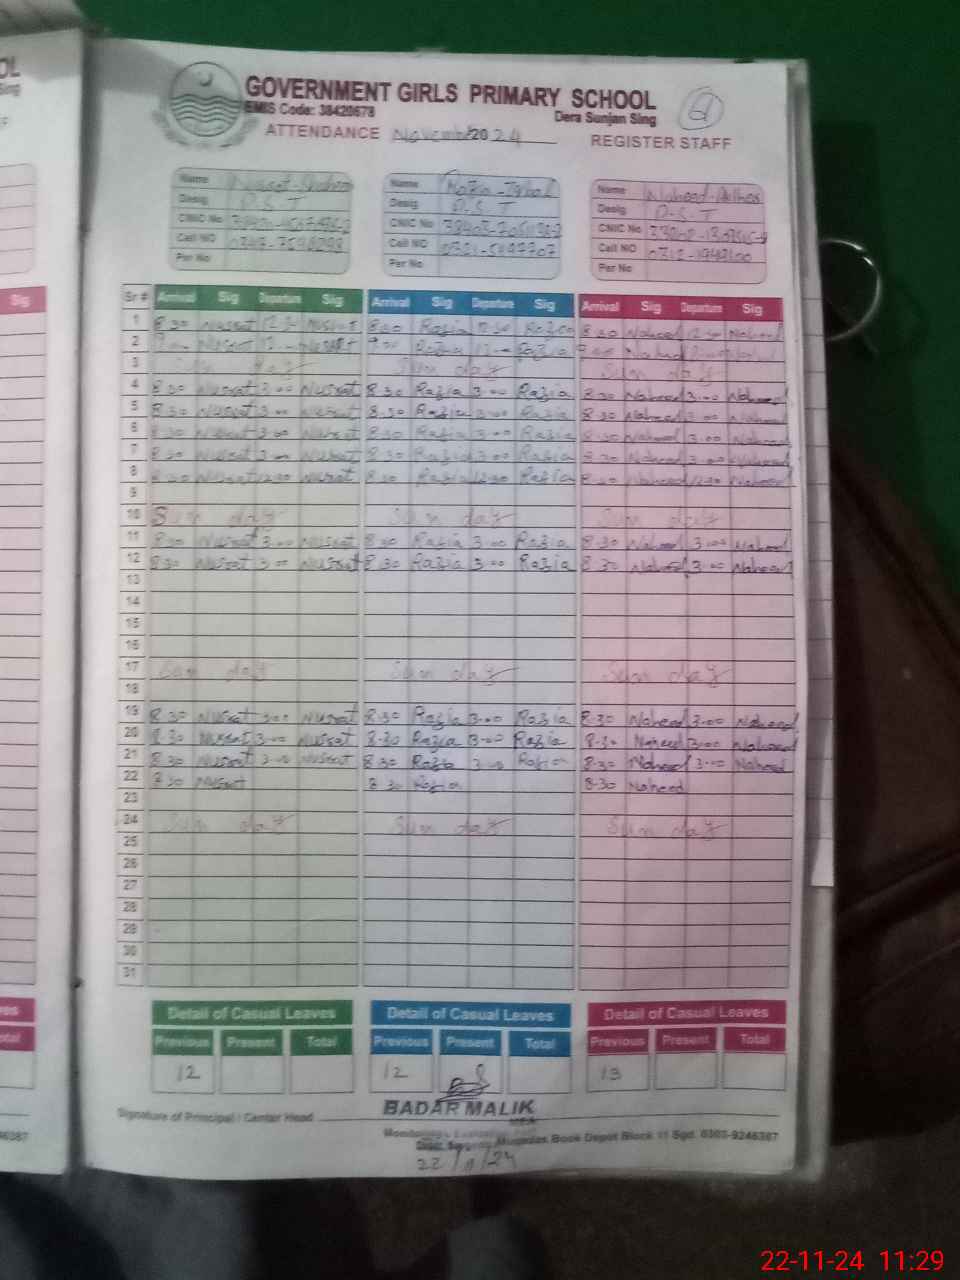 GOVERNMENT GIRLS PRIMARY SCHOOL
EMIS Code: 38420678
Dera Sunjan Sing
ATTENDANCE November 2024 REGISTER STAFF
Name Name Razia - Name Naheed -
Desig P.S.T Desig P.S.T Desig P.S.T
CNIC No CNIC No CNIC No
Cell NO Cell NO Cell NO
Per No Per No Per No
Sr # Arrival Sig Departure Sig Arrival Sig Departure Sig Arrival Sig Departure Sig
1 8.30 Nusrat 12.30 Nusrat 8.30 Razia 12.30 Razia 8.30 Naheed 12.30 Naheed
2 Nusrat Nusrat Razia Razia
3 Sun day Sun day Sun day
4 8.30 Nusrat 3.00 Nusrat 8.30 Razia 3.00 Razia 8.30 Naheed 3.00 Naheed
5 8.30 Nusrat 3.00 Nusrat 8.30 Razia 3.00 Razia 8.30 Naheed 3.00 Naheed
6 8.30 Nusrat 3.00 Nusrat 8.30 Razia 3.00 Razia 8.30 Naheed 3.00 Naheed
7 8.30 Nusrat 3.00 Nusrat 8.30 Razia 3.00 Razia 8.30 Naheed 3.00 Naheed
8 8.30 Nusrat 12.30 Nusrat 8.30 Razia 12.30 Razia 8.30 Naheed 12.30 Naheed
9
10 Sun day Sun day Sun day
11 8.30 Nusrat 3.00 Nusrat 8.30 Razia 3.00 Razia 8.30 Naheed 3.00 Naheed
12 8.30 Nusrat 3.00 Nusrat 8.30 Razia 3.00 Razia 8.30 Naheed 3.00 Naheed
13
14
15
16
17 Sun day Sun day Sun day
18
19 8.30 Nusrat 3.00 Nusrat 8.30 Razia 3.00 Razia 8.30 Naheed 3.00 Naheed
20 8.30 Nusrat 3.00 Nusrat 8.30 Razia 3.00 Razia 8.30 Naheed 3.00 Naheed
21 8.30 Nusrat 3.00 Nusrat 8.30 Razia 3.00 Razia 8.30 Naheed 3.00 Naheed
22 8.30 Nusrat 8.30 Razia 8.30 Naheed
23
24 Sun day Sun day Sun day
25
26
27
28
29
30
31
Detail of Casual Leaves Detail of Casual Leaves Detail of Casual Leaves
Previous Present Total Previous Present Total Previous Present Total
12 12 13
Signature of Principal / Center Head
BADAR MALIK
MEA
Book Depot Block 11 Sgd. 0303-9246387
22/11/24
22-11-24 11:29